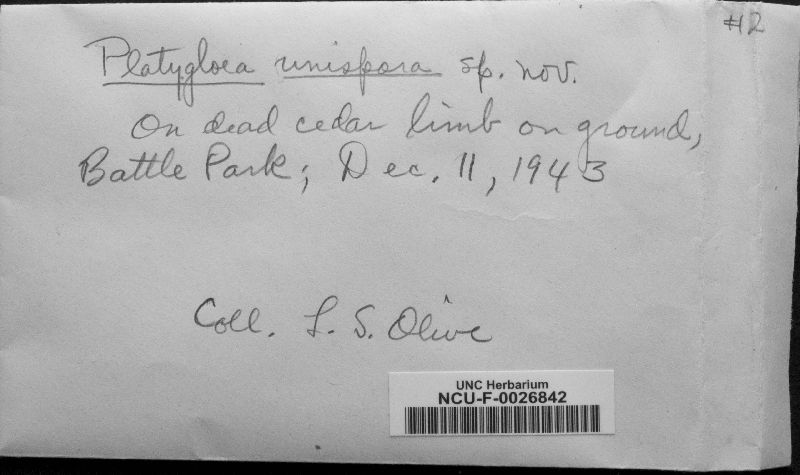 #12
Platygloea unispora sp. nov.
On dead cedar limb on ground,
Battle Park; Dec. 11, 1943
Coll. L. S. Olive
UNC Herbarium
NCU-F-0026842